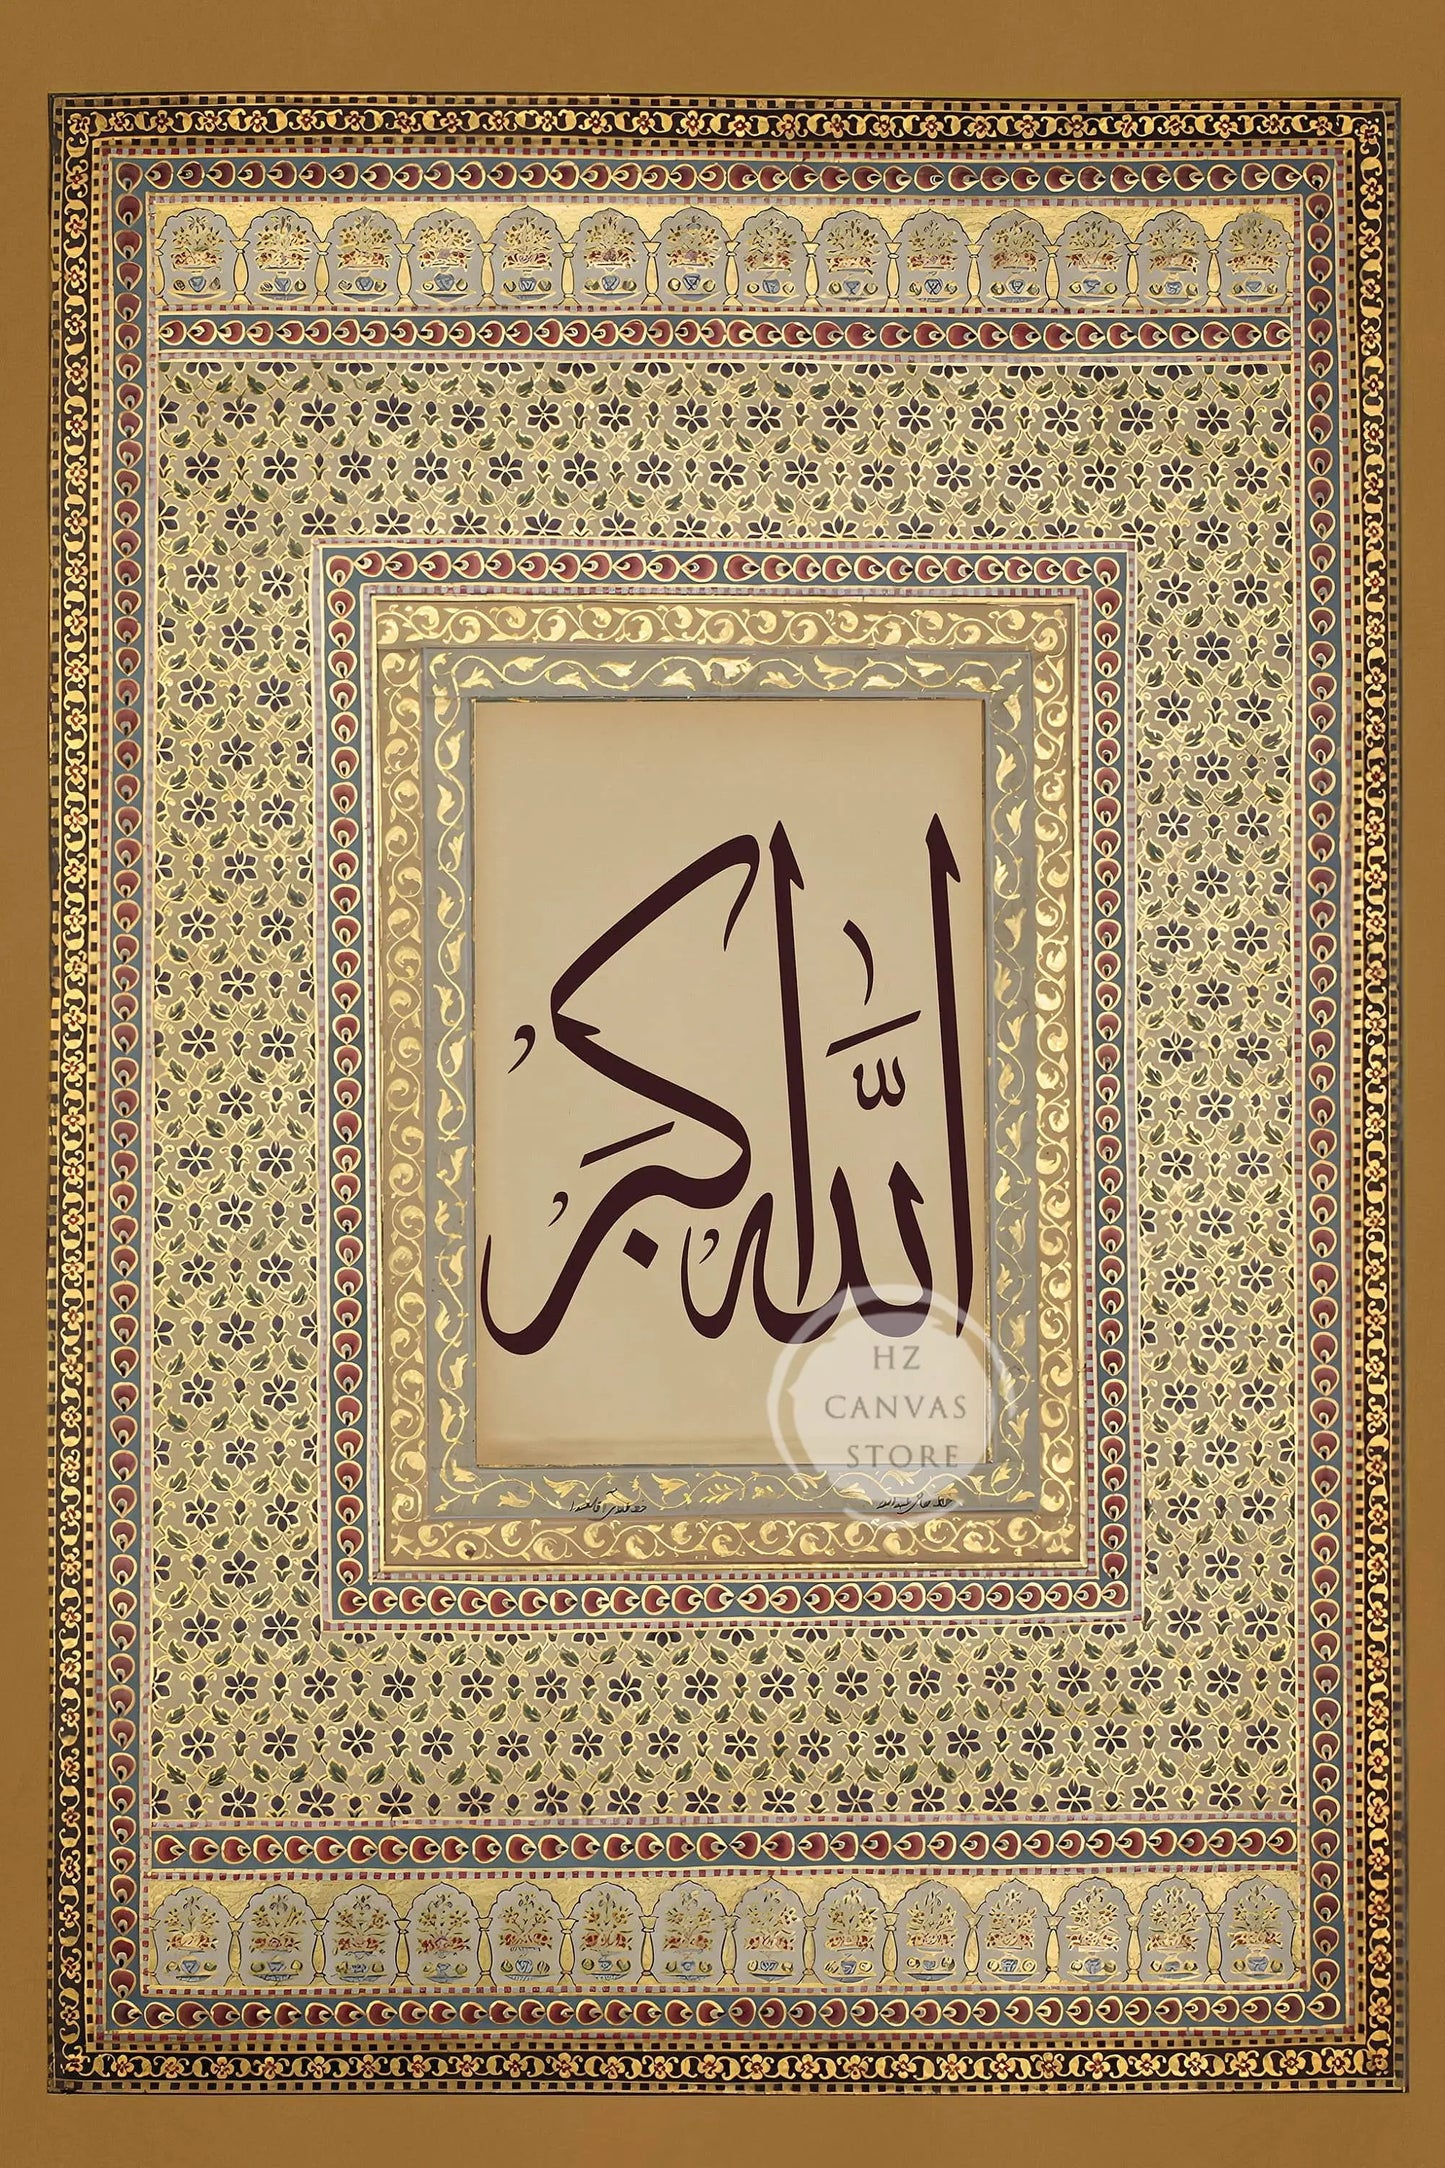 الله اكبر
HZ
CANVAS
STORE